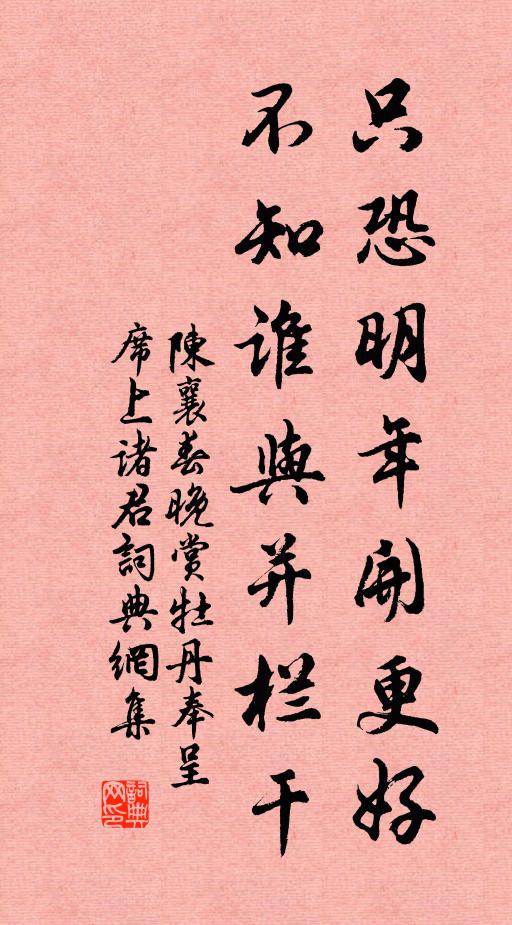 只恐明年開更好
不知誰與并栏干
陳襄春晚赏牡丹奉呈
席上诸君詞典網集
詞典网印